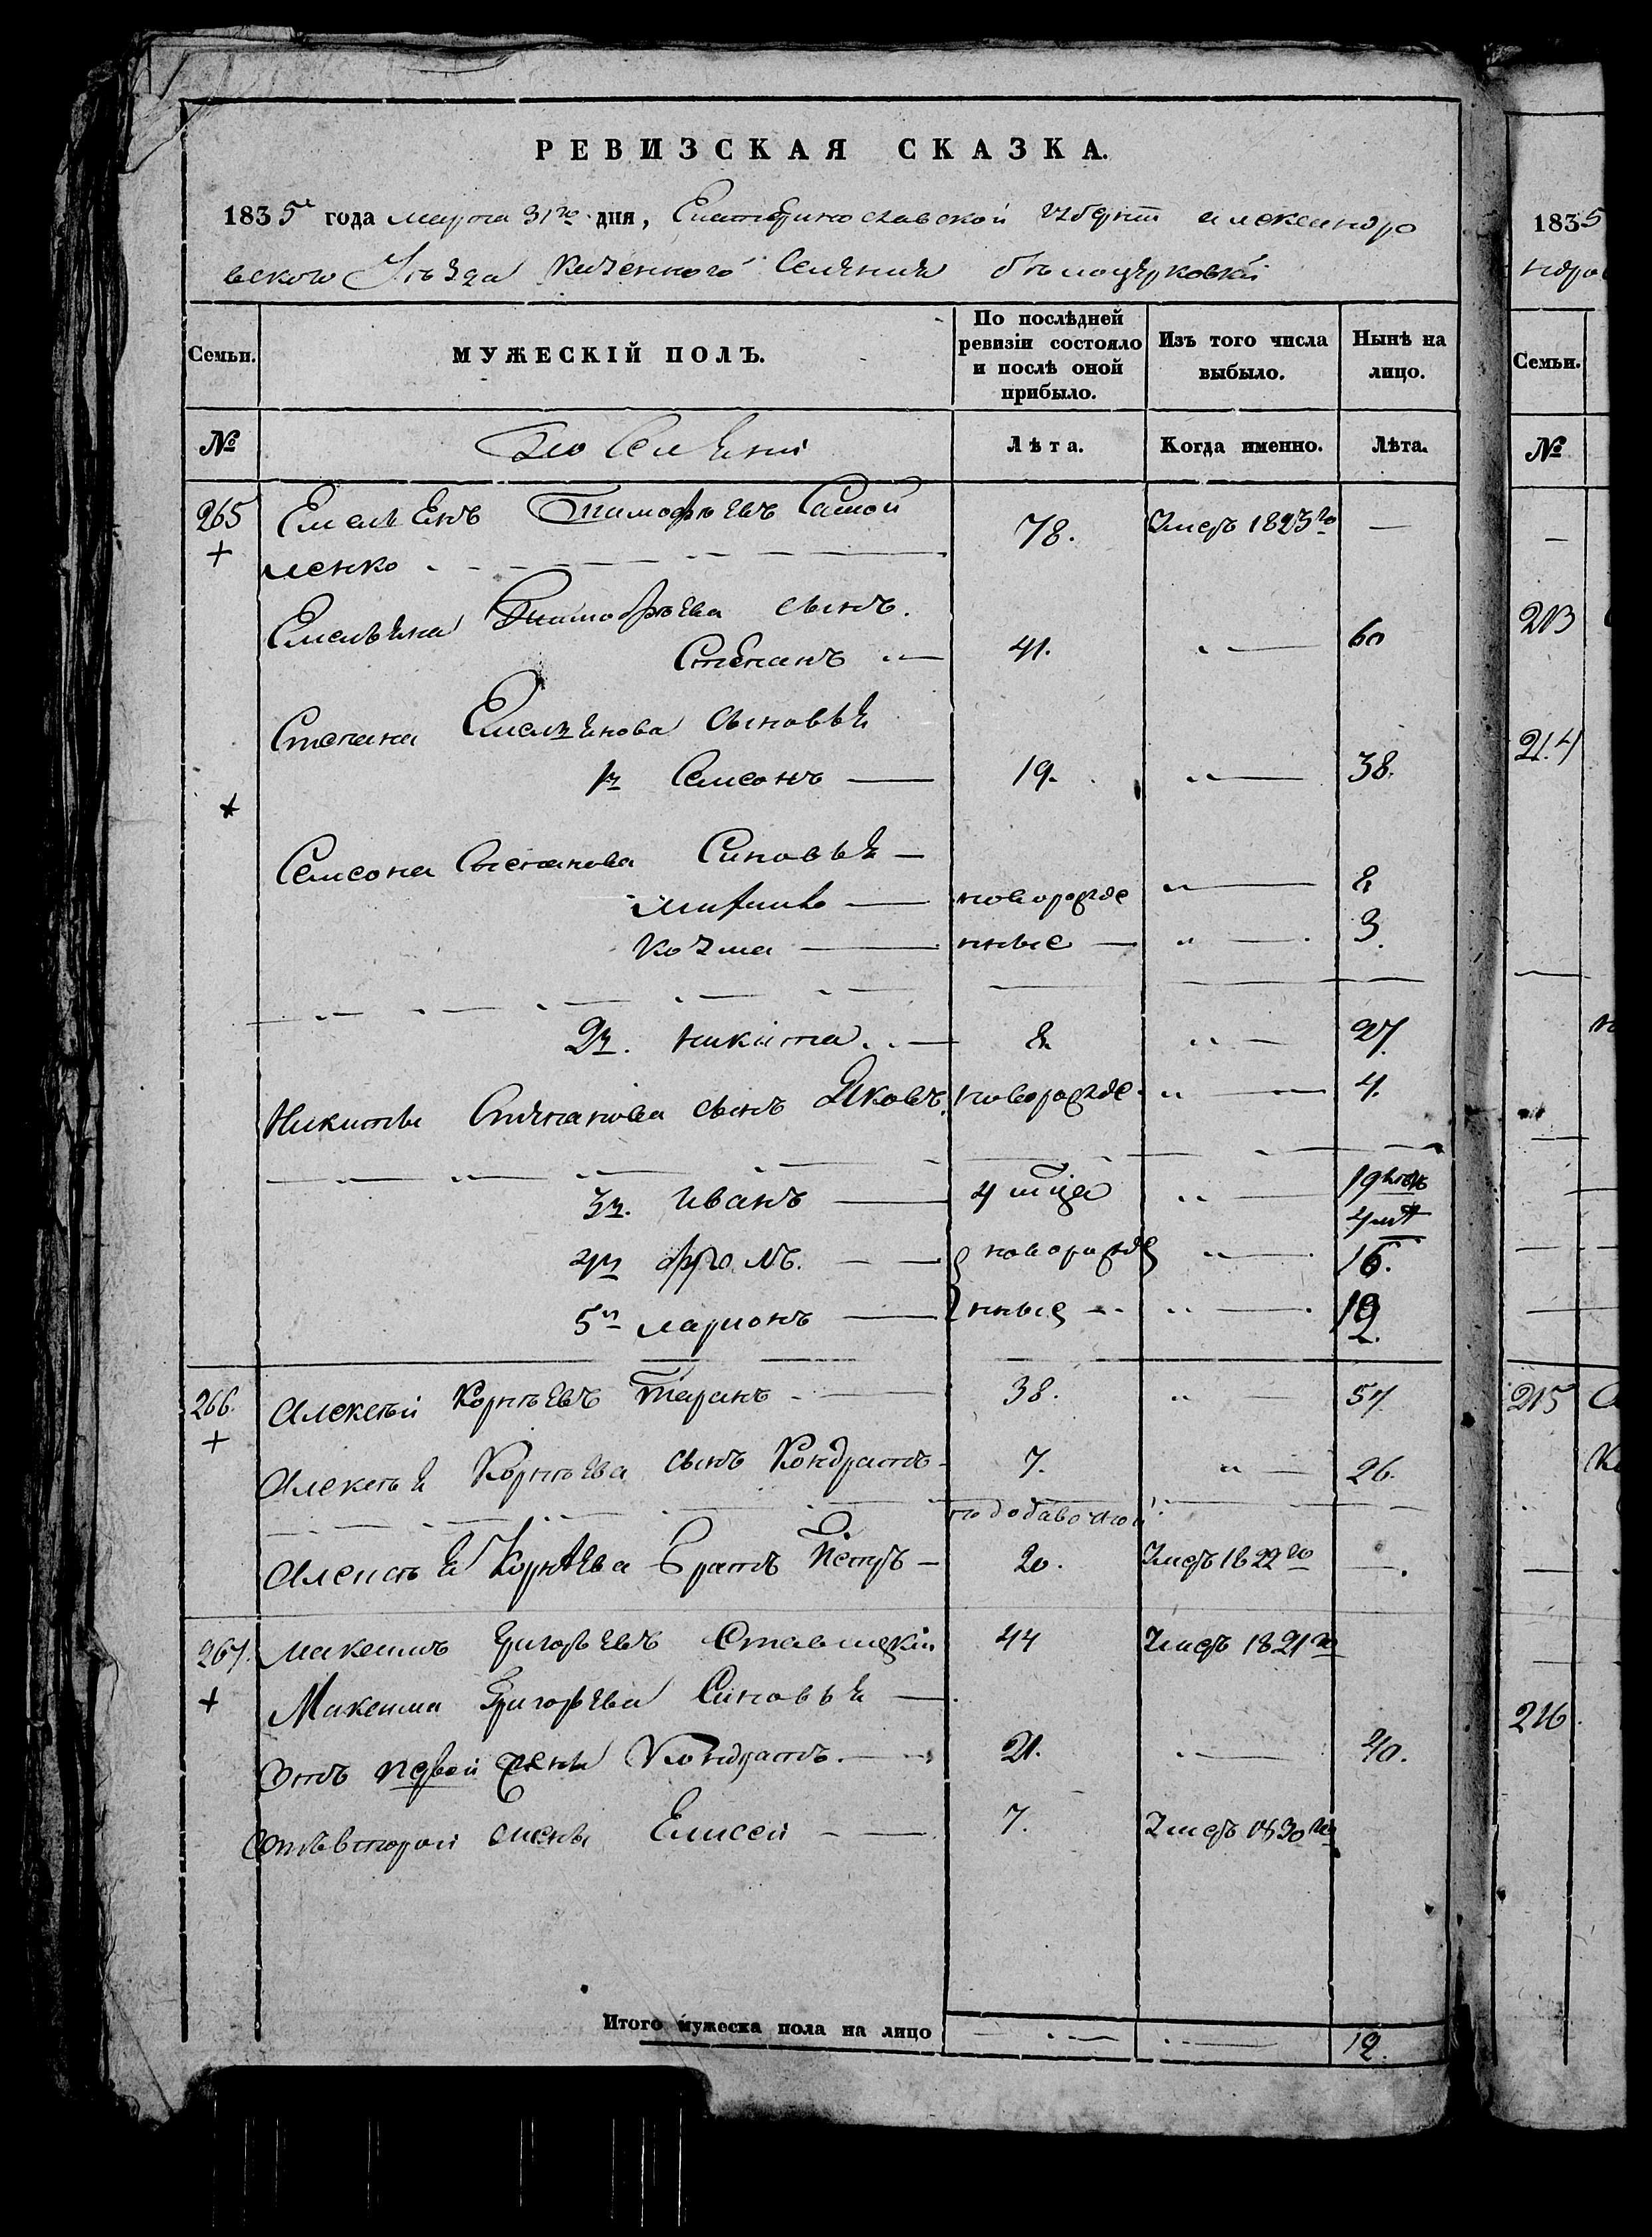 РЕВИЗСКАЯ СКАЗКА.
1835 года марта 31го дня, Екатеринославской губерніи александро
вского Уѣзда Казенного Селения бѣлоцерковки
Семьи.
МУЖЕСКІЙ ПОЛЪ.
По послѣдней ревизіи состояло и послѣ оной прибыло.
Изъ того числа выбыло.
Нынѣ на лицо.
№
Лѣта.
Когда именно.
Лѣта.
265 Емельянъ Тимофѣевъ Самой
ленко 78. Умеръ 1823го —
Емельяна Тимофѣева сынъ.
Степанъ 41. 60
Степана Емельянова сыновья
1й Самсонъ 19. 38.
Самсона Степанова Сыновья
новорожде 8
Козма нные 3.
2й. никита 8 27.
Никиты Степанова сынъ Яковъ новорожде 4.
3й. Иванъ 4 мца 19 лѣтъ
4 м
4й фролъ. новорожде 16.
5й ларионъ нные 12.
266. Алексѣй Корнѣевъ Таранъ 38. 57
Алексѣя Корнѣева сынъ Кондратъ 7. 26.
по добавочной
Алексѣя Корнѣева братъ Петръ 20. Умеръ 1822го —.
267. Максимъ Григорьевъ Ставицкій 44 Умеръ 1821го
Максима Григорьева Сыновья
Отъ первой жены Кондратъ. 21. 40.
Отъ второй жены Елисей 7. Умеръ 1830го
Итого мужеска пола на лицо 12.
1835
ндро
Семьи.
№
213
214
215
216